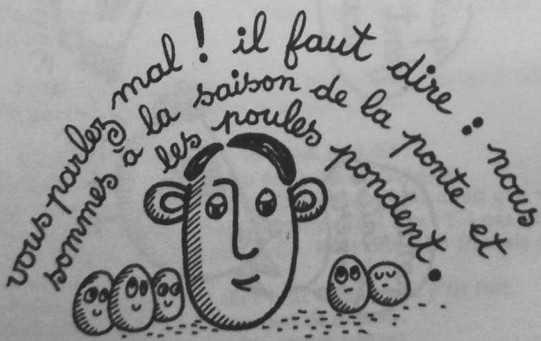 vous parlez mal ! il faut dire : nous
sommes à la saison de la ponte et
les poules pondent.